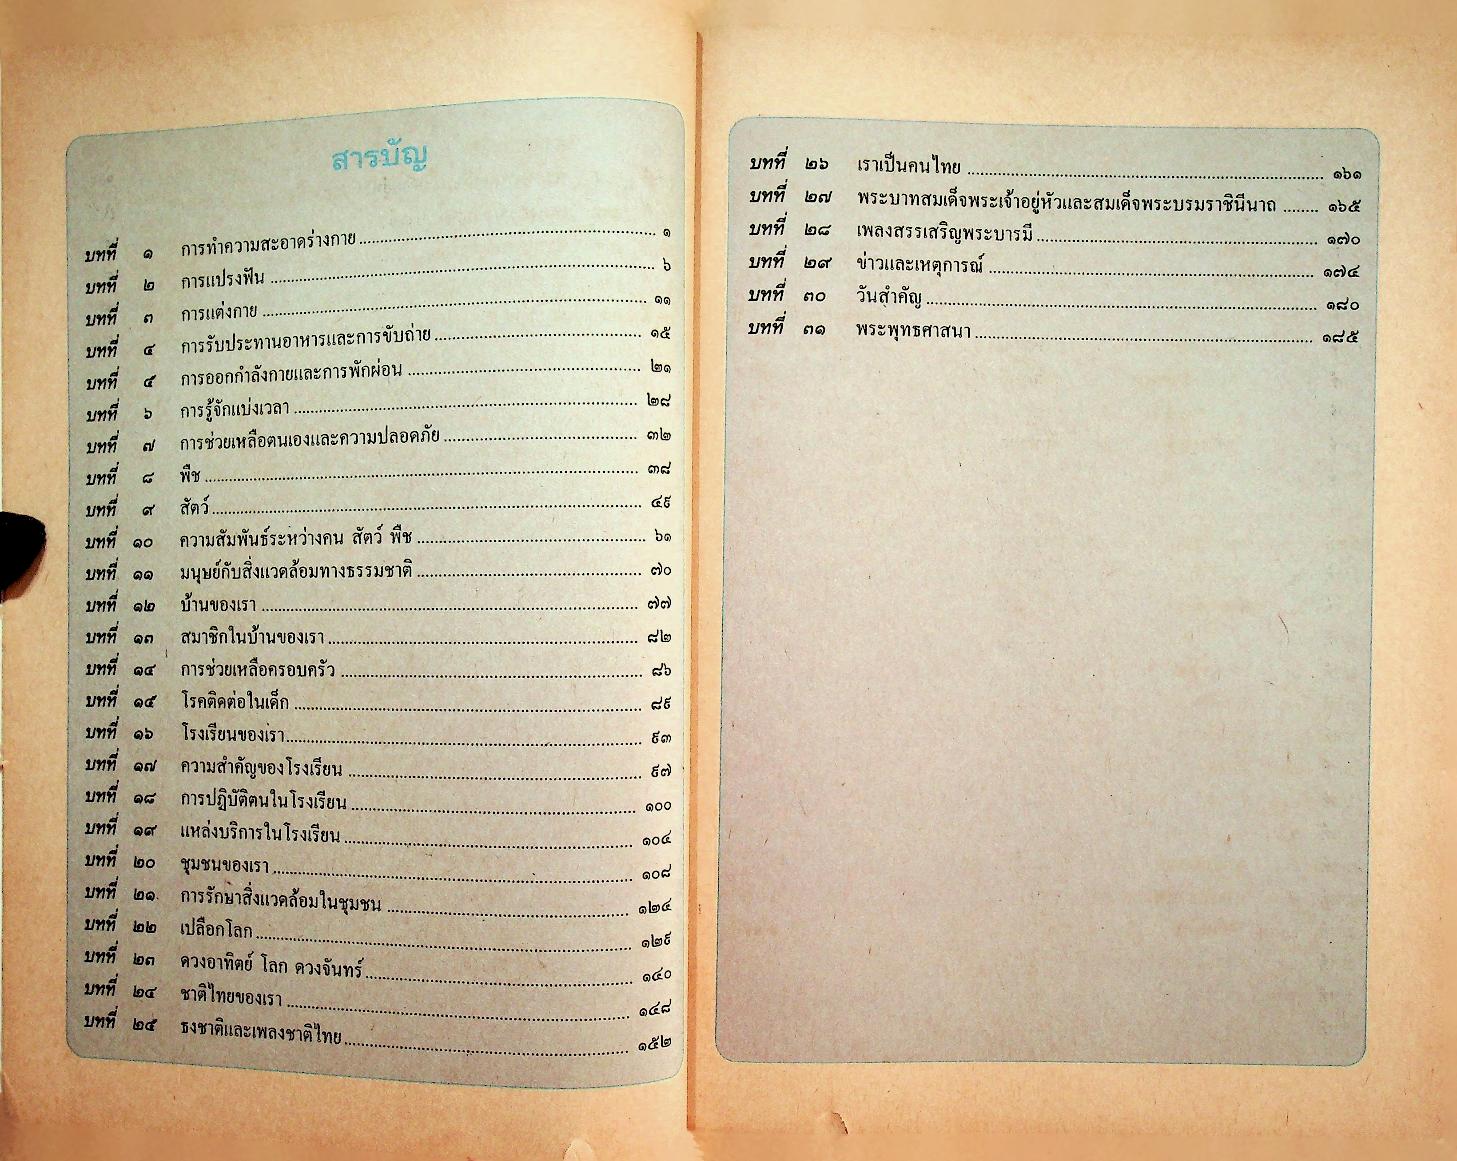 สารบัญ
บทที่ ๑ การทำความสะอาดร่างกาย ๑
บทที่ ๒ การแปรงฟัน ๖
บทที่ ๓ การแต่งกาย ๑๑
บทที่ ๔ การรับประทานอาหารและการขับถ่าย ๑๕
บทที่ ๕ การออกกำลังกายและการพักผ่อน ๒๑
บทที่ ๖ การรู้จักแบ่งเวลา ๒๘
บทที่ ๗ การช่วยเหลือตนเองและความปลอดภัย ๓๒
บทที่ ๘ พืช ๓๘
บทที่ ๙ สัตว์ ๔๙
บทที่ ๑๐ ความสัมพันธ์ระหว่างคน สัตว์ พืช ๖๑
บทที่ ๑๑ มนุษย์กับสิ่งแวดล้อมทางธรรมชาติ ๗๐
บทที่ ๑๒ บ้านของเรา ๗๗
บทที่ ๑๓ สมาชิกในบ้านของเรา ๘๒
บทที่ ๑๔ การช่วยเหลือครอบครัว ๘๖
บทที่ ๑๕ โรคติดต่อในเด็ก ๘๙
บทที่ ๑๖ โรงเรียนของเรา ๙๓
บทที่ ๑๗ ความสำคัญของโรงเรียน ๙๗
บทที่ ๑๘ การปฏิบัติตนในโรงเรียน ๑๐๐
บทที่ ๑๙ แหล่งบริการในโรงเรียน ๑๐๔
บทที่ ๒๐ ชุมชนของเรา ๑๐๘
บทที่ ๒๑ การรักษาสิ่งแวดล้อมในชุมชน ๑๒๔
บทที่ ๒๒ เปลือกโลก ๑๒๙
บทที่ ๒๓ ดวงอาทิตย์ โลก ดวงจันทร์ ๑๔๐
บทที่ ๒๔ ชาติไทยของเรา ๑๔๘
บทที่ ๒๕ ธงชาติและเพลงชาติไทย ๑๕๒
บทที่ ๒๖ เราเป็นคนไทย ๑๖๑
บทที่ ๒๗ พระบาทสมเด็จพระเจ้าอยู่หัวและสมเด็จพระบรมราชินีนาถ ๑๖๕
บทที่ ๒๘ เพลงสรรเสริญพระบารมี ๑๗๐
บทที่ ๒๙ ข่าวและเหตุการณ์ ๑๗๔
บทที่ ๓๐ วันสำคัญ ๑๘๐
บทที่ ๓๑ พระพุทธศาสนา ๑๘๕